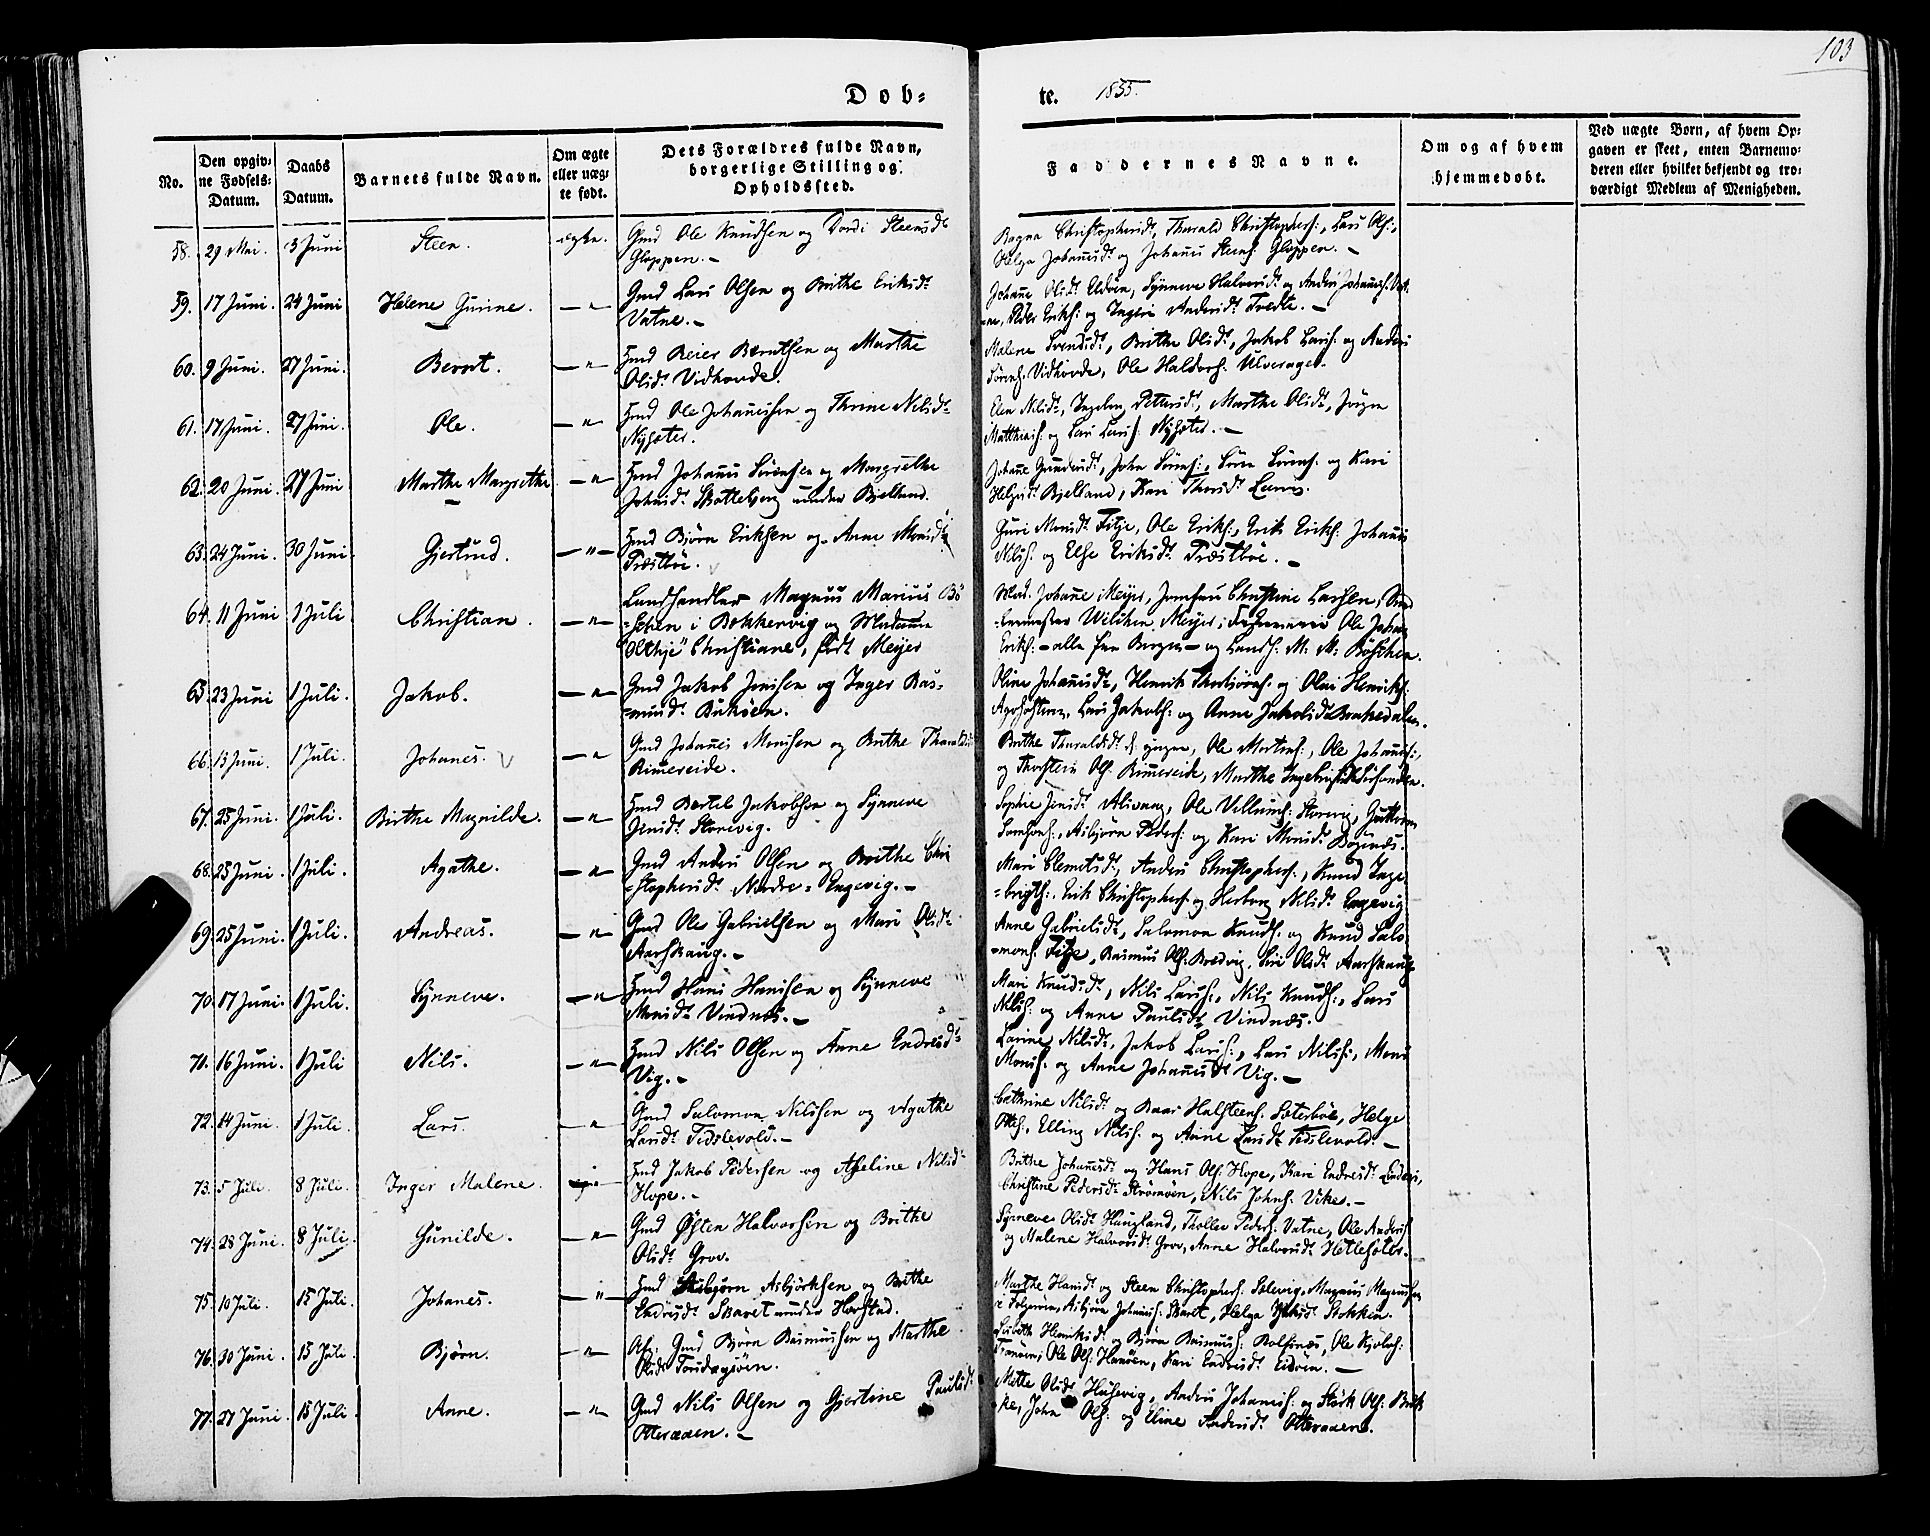 103
Døb=
te. 1855.
No.
Den opgiv=
ne Fødsels=
Datum.
Daabs
Datum.
Barnets fulde Navn.
Om ægte
eller uæg=
te født.
Dets Forældres fulde Navn,
borgerlige Stilling og
Opholdssted.
Faddernes Navne.
Om og af hvem
hjemmedøbt.
Ved uægte Børn, af hvem Op=
gaven er skeet, enten Barnemo=
deren eller hvilket bekjendt og tro=
værdigt Medlem af Menigheden.
58. 29 Mai. 3 Juni Steen. ægte. Gmd Ole Knudsen og Dordi Steensdr
Gloppen.-
Ragna Christophersdt, Tharald Christophers:, Lars Ols:,
Helga Johannsdt og Johannes Steens: Gloppen.-
59. 17 Juni. 24 Juni Helene Gurine. -"- Gmd Lars Olsen og Brithe Eriksdt
Vatne.-
Johanne Olsdt Eldøen, Synneve Halvorsdt og Anders Johannes: Vat-
ne, Peder Eriks: og Ingeri Andersdt Tvedte.-
60. 9 Juni. 27 Juni. Bernt. -"- Hmd Beier Berntsen og Marthe
Olsdt Vidhovde.
Malene Svendsdt, Brithe Olsdt, Jakob Lars: og Anders
Sørens: Vidhovde, Ole Haldors: Ulveraget.
61. 17 Juni. 27 Juni. Ole. -"- Hmd Ole Johannesen og Thrine Nilsdt
Nysæter.
Elen Nilsdt, Ingelev Pettersdt, Marthe Olsdt, Jørgen
Matthias: og Lars Lars: Nysæter.-
62. 20 Juni. 27 Juni Marthe Margrethe -"- Hmd Johannes Sørensen og Margrethe
Johnsdt Skatteberg under Bjelland.
Johanne Gundersdt, John Sørens:, Søren Sørens: og Kari
Helgesdt Bjelland, Kari Thorsdt
63. 24 Juni. 30 Juni. Gjertrud. -"- Hmd Bjørn Eriksen og Anne Monsdt
Præstbøe.
Guri Monsdt Fitje, Ole Eriks:, Erik Eriks: Johannes
Nils: og Else Eriksdt Præstbøe.-
64. 11 Juni 1 Juli Christian. -"- Landhandler Magnus Marius Bø
=schen i Bekkervig og Madame
Christiane, født Meyer
Mad. Johanne Meyer, Jomfru Christine Lassen,
Wilchen Meyer, Ole Johan
Eriks:-alle fra Bergen-og Landh: M: M: Bøschen.
65. 23 Juni 1 Juli. Jakob. -"- Gmd Jakob Jensen og Inger Ras=
=musdt Bukøen.
Oline Johannsdt, Henrik Thorbjørns: og Oline Henriks:
Lars Jakobs: og Anne Jakobsdt Brakedalen.
66. 13 Juni. 1 Juli. Johanes. -"- Gmd Johannes Monsen og Brithe Tharaldsdt
Rimereide.
Brithe Tharaldsdt d: yngre, Ole Mortens:, Ole Johannes:,
og Thorstein Ols: Rimereide, Marthe
67. 25 Juni. 1 Juli. Birthe Magnilde. -"- Hmd Bertel Jakobsen og Synneve
Jensdt Storevig.
Sophie Jensdt Alivang, Ole Villums: Storevig, Guttorm
Samsons:, Asbjørn Peders: og Kari Monsdt
68. 25 Juni. 1 Juli. Agathe. -"- Gmd Anders Olsen og Brithe Chri
=stophersdt Nordre=Engevig.-
Mari Clemetsdt, Anders Christophers:, Knud Inge
=brigts: Erik Christophers: og Herborg Nilsdt Engevig
69. 25 Juni. 1 Juli. Andreas. -"- Gmd Ole Gabrielsen og Mari Olsdt
Aarskaug.-
Anne Gabrielsdt, Salomon Knuds: og Knud Salo
=mons: Fitje, Rasmus Ols: Bredvig, Siri Olsdt Aarskaug
70. 17 Juni. 1 Juli. Synneve. -"- Hmd Hans Hansen og Synneve
Monsdt Vindnæs.-
Mari Knudsdt, Nils Lars:, Nils Knuds:, Lars
Nils: og Anne Paulsdt Vindnæs.
71. 16 Juni. 1 Juli Nils. -"- Hmd Nils Olsen og Anne Endresdt
Vig.-
Larine Nilsdt, Jakob Lars:, Lars Nils:, Mons
Mons: og Anne Johannsdt Vig.-
72. 14 Juni. 1 Juli. Lars. -"- Gmd Salomon Nilssen og Agathe
Larsdt Tidslevold.-
Cathrine Nilsdt og Baar Halsteens: Sæterbøe, Helge
Ols:, Elling Nils: og Anne Larsdt Tidslevold.-
73. 5 Juli. 8 Juli. Inger Malene. Hmd Jakob Pedersen og Aseline Nilsdt
Hope.-
Brithe Johannesdt og Hans Ols: Hope, Kari Endresdt
Christine Pedersdt Strømøen, Nils Johns: Vikse.-
74. 28 Juni. 8 Juli. Gunilde. -"- Gmd Østen Halvorsen og Brithe
Olsdt Grov.
Synneve Olsdt Haugland, Tholle Peders: Vatne, Ole Anders:
og Malene Halvorsdt Grov, Anne Halvorsdt Hetlesæter.
75. 10 Juli. 15 Juli. Johanes. -"- Hmd Asbjørn Asbjørnsen og Brithe
Endresdt Skaret under Harstad.
Marthe Hansdt og Steen Christophers: Solevig, Magnus Magnussen
Asbjørn Johannes: Skaret, Helga Stokken.
76. 30 Juni. 15 Juli. Bjørn. -"- Gmd Bjørn Rasmussen og Marthe
Olsdt Torsdagsøen.
Lisbeth Henriksdt og Bjørn Rasmus: Rolfsnæs, Ole
Ole Ols: Hanøen, Kari Endresdt Eidøen.-
77. 27 Juni. 15 Juli. Anne. -"- Gmd Nils Olsen og Gjertine Paulsdt
Otteraaen.-
Mette Olsdt Husevig, Anders Johannes: og Størk Ols: Bek
ke, John Ols: og Eline Andersdt Otteraaen.